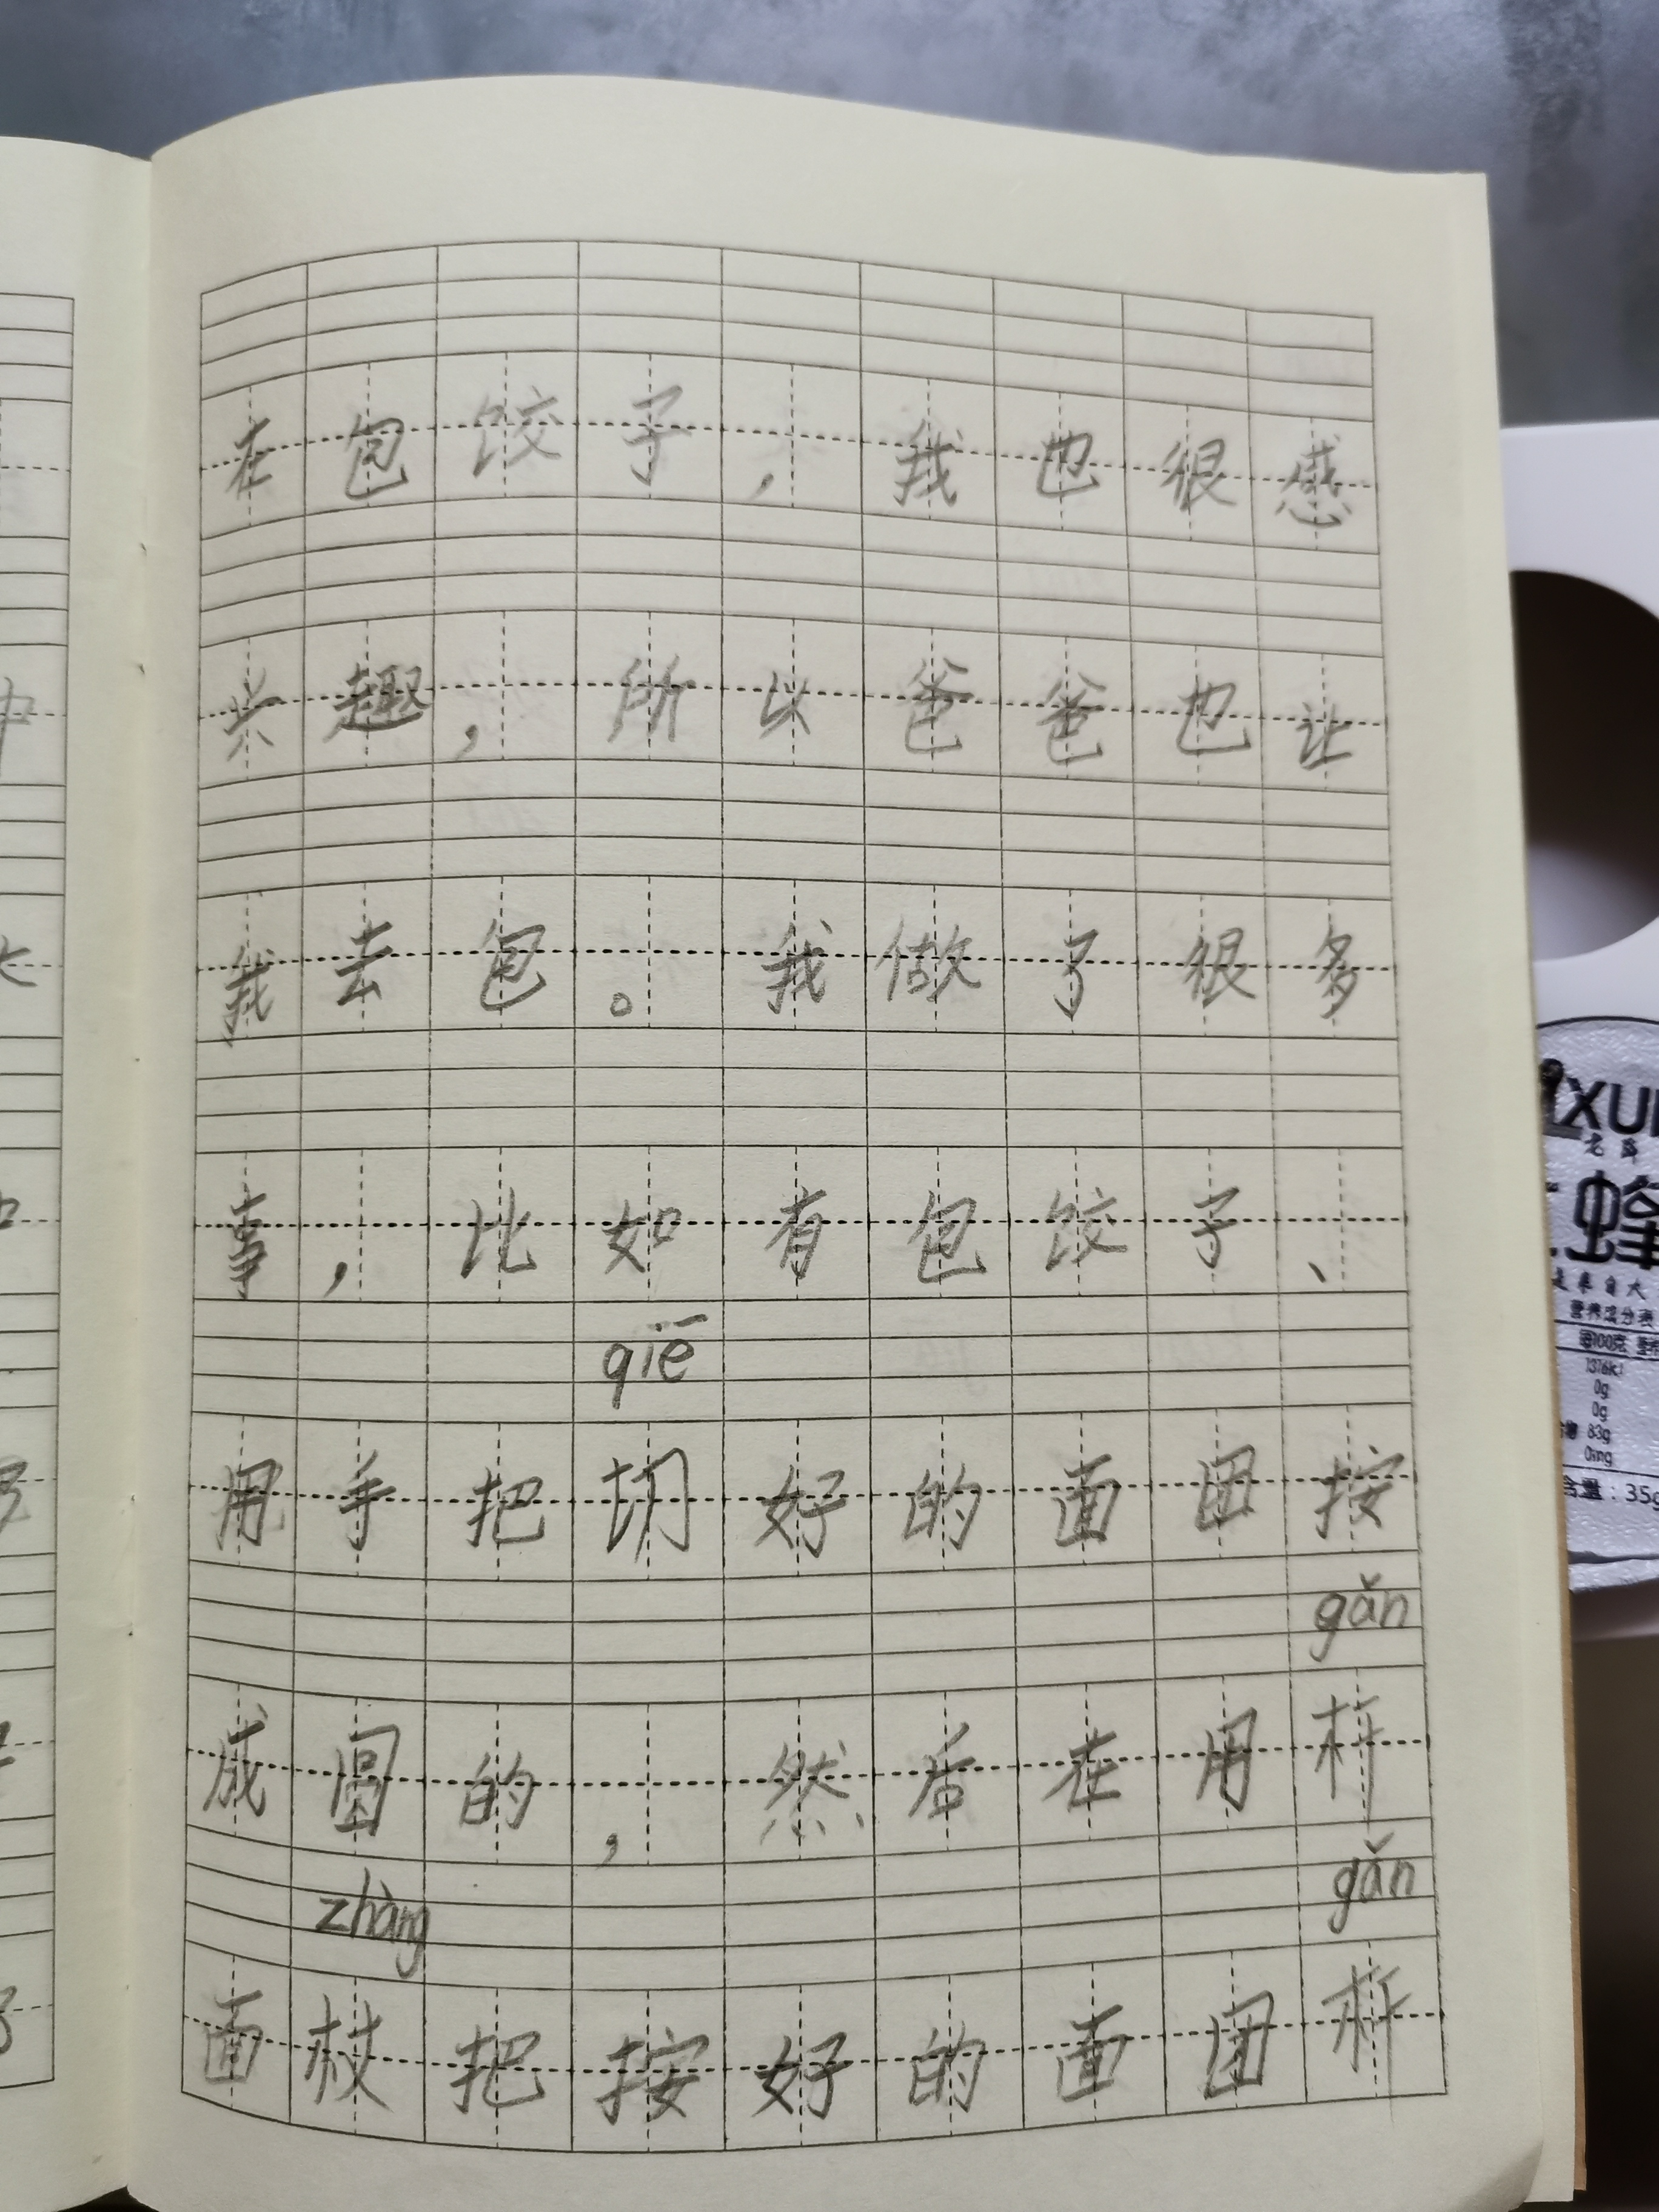 在包饺子，我也很感
兴趣，所以爸爸也让
我去包。我做了很多
事，比如有包饺子、
qiē
用手把切好的面团按
gǎn
成圆的，然后在用杆
zhàng gǎn
面杖把按好的面团杆
XUE
蜂
营养成分表
0g
0g
83g
0mg
含量：35g